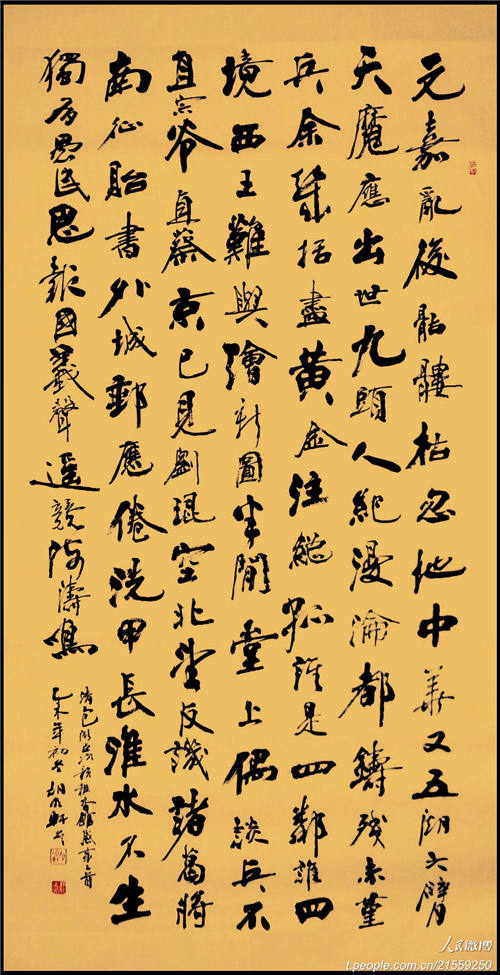 元嘉亂後骷髏枯忽地中華又五胡六臂
天魔應出世九頭人紀漫淪都鑄殘赤堇
兵余幾括盡黃金注總孤誰是四鄰誰四
境西王難與繪新圖半閒堂上偶談兵不
直宗爺直蔡京已見劉琨空北望反譏諸葛將
南征貽書外城郵應倦洗甲長淮水不生
獨有愚民思報國義聲遙競海濤鳴
乙未年初冬胡
人民微博
t.people.com.cn/21559250